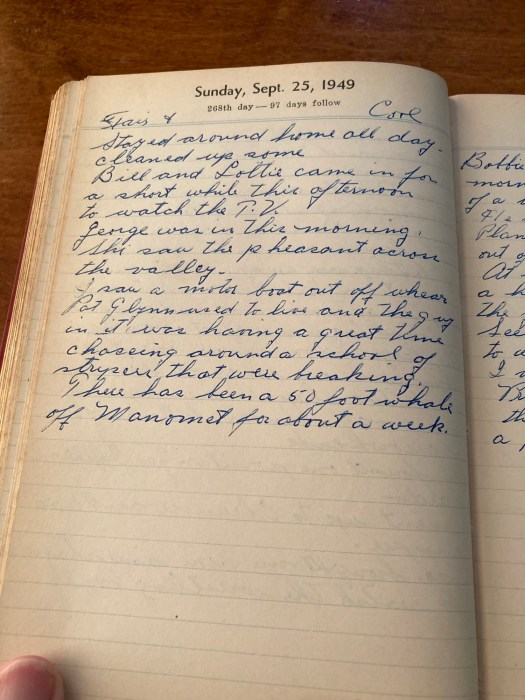 Sunday, Sept. 25, 1949
268th day — 97 days follow
Fair & Cool
Stayed around home all day.
cleaned up some
Bill and Lottie came in for
a short while this afternoon
to watch the T.V.
George was in this morning.
Shi saw the pheasant across
the valley.
I saw a motor boat out off whear
Pat Glynn used to live and the guy
in it was having a great time
chaseing around a school of
stripers that were breaking.
There has been a 50 foot whale
off Manomet for about a week.
Bobbie
morn
of a
Plan
out o
At
a h
the
See
to w
I
th
a